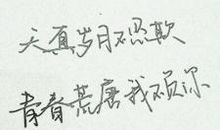 天真岁月不忍欺
青春荒唐我不负你